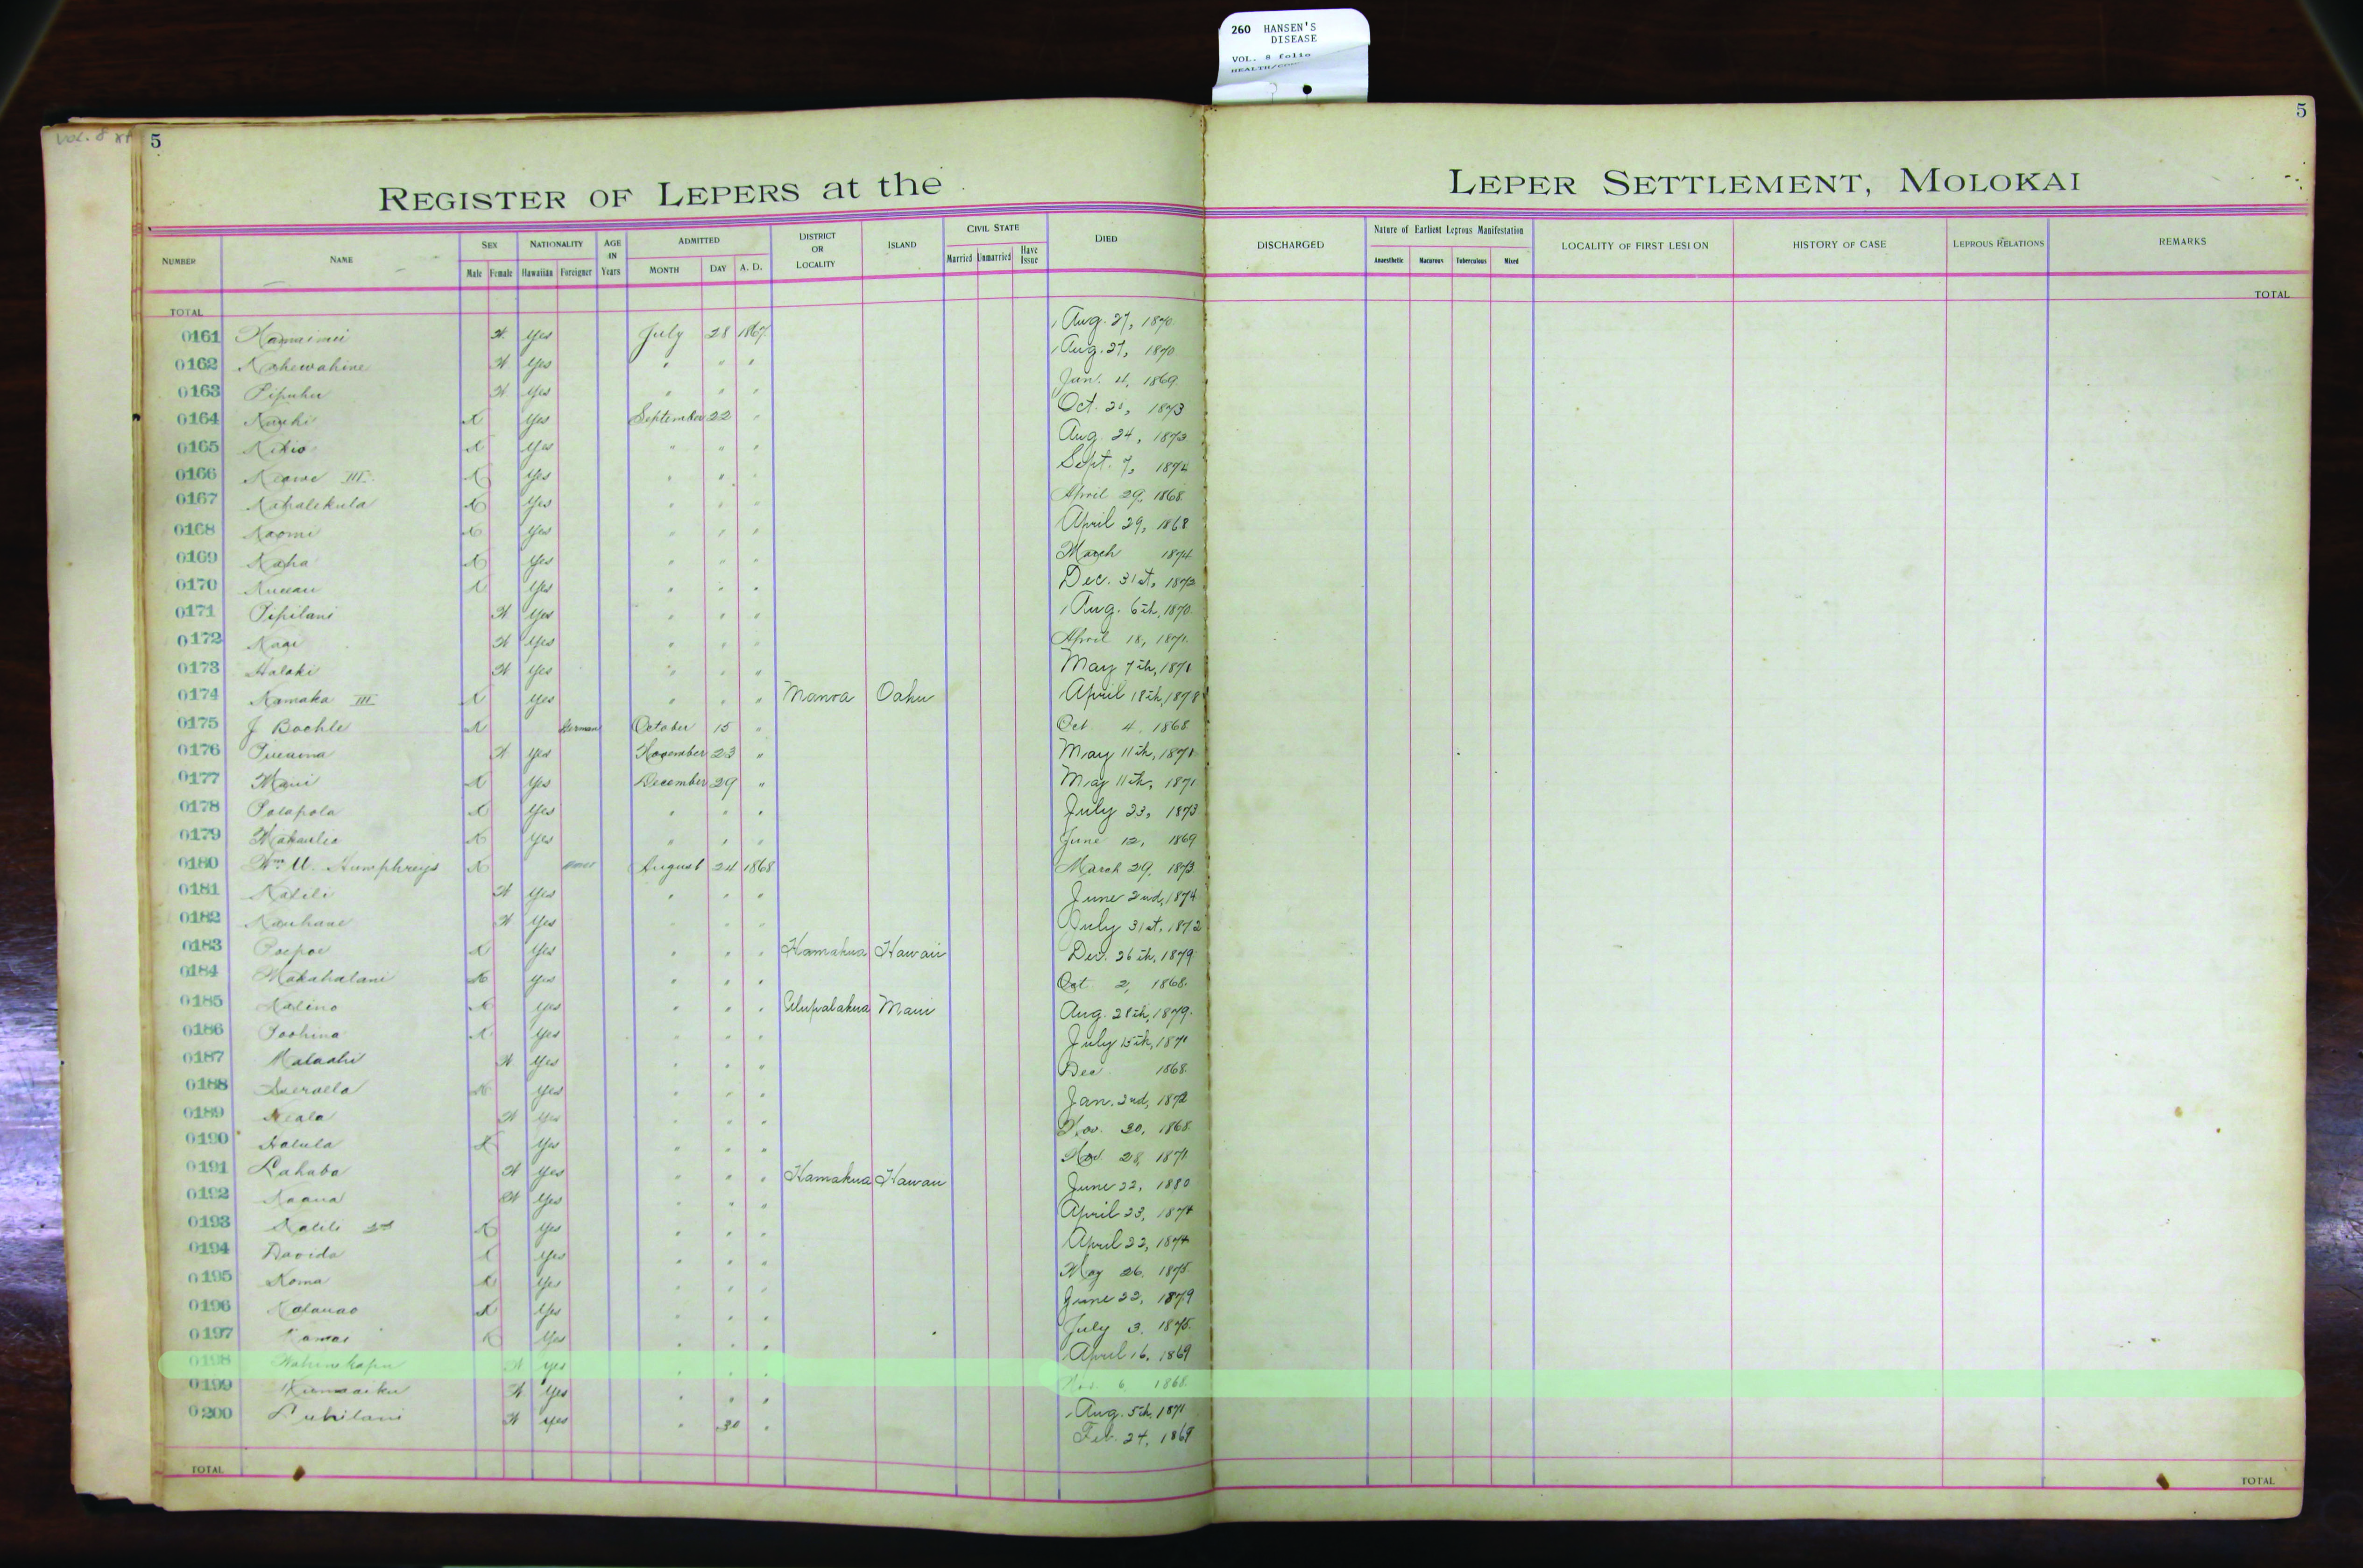 260 HANSEN'S
DISEASE
VOL. 8 folio
VOL. 8
5
5
REGISTER OF LEPERS at the LEPER SETTLEMENT, MOLOKAI
NUMBER NAME SEX NATIONALITY AGE IN Years ADMITTED DISTRICT OR LOCALITY ISLAND CIVIL STATE DIED DISCHARGED Nature of Earliest Leprous Manifestation LOCALITY OF FIRST LESION HISTORY OF CASE LEPROUS RELATIONS REMARKS
Male Female Hawaiian Foreigner MONTH DAY A. D. Married Unmarried Have Issue Anaesthetic Macurous Tuberculous Mixed
TOTAL TOTAL
0161 Yes July 28 1867 Aug. 27, 1870
0162 Kahewahine Yes " " " Aug. 27, 1870
0163 Pipuhu Yes " " " Jan. 4, 1869
0164 Yes September 22 " Oct. 1873
0165 Kikio Yes " " " Aug. 24, 1873
0166 Keawe III Yes " " " Sept. 7, 1874
0167 Kahalekula Yes " " " April 29, 1868
0168 Naomi Yes " " " April 29, 1868
0169 Kaha Yes " " " March 1874
0170 Yes " " " Dec. 31st, 1873
0171 Pipilani Yes " " " Aug. 6th, 1870
0172 Yes " " " April 18, 1871
0173 Halaki Yes " " " May 7th, 1871
0174 Kamaka III Yes " " " Manoa Oahu April 18th, 1878
0175 J Boehle German October 15 " Oct 4, 1868
0176 Yes November 23 " May 11th, 1871
0177 Maui Yes December 29 " May 11th, 1871
0178 Polapola Yes " " " July 23, 1873
0179 Yes " " " June 12, 1869
0180 Wm U. Humphreys August 24 1868 March 29, 1873
0181 Kalili Yes " " " June 2nd, 1874
0182 Kauhane Yes " " " July 31st, 1872
0183 Poepoe Yes " " " Hamakua Hawaii Dec. 26th, 1879
0184 Makahalani Yes " " " Oct 2, 1868
0185 Kalino Yes " " " Ulupalakua Maui Aug. 28th, 1879
0186 Poohina Yes " " " July 15th, 1871
0187 Malaahi Yes " " " Dec 1868
0188 Yes " " " Jan. 2nd, 1872
0189 Yes " " " Nov. 30, 1868
0190 Halula Yes " " " Nov. 28, 1871
0191 Lahaba Yes " " " Hamakua Hawaii June 22, 1880
0192 Kaaua Yes " " " April 23, 1874
0193 Kalili 2nd Yes " " " April 22, 1874
0194 Davida Yes " " " May 26, 1875
0195 Koma Yes " " " June 22, 1879
0196 Kalauao Yes " " " July 3, 1875
0197 Kamai Yes " " " April 16, 1869
0198 Wahinekapu Yes " " " Nov. 6, 1868
0199 Yes " " " Aug. 5th, 1871
0200 Luhilani Yes " 30 " Feb. 24, 1869
TOTAL TOTAL